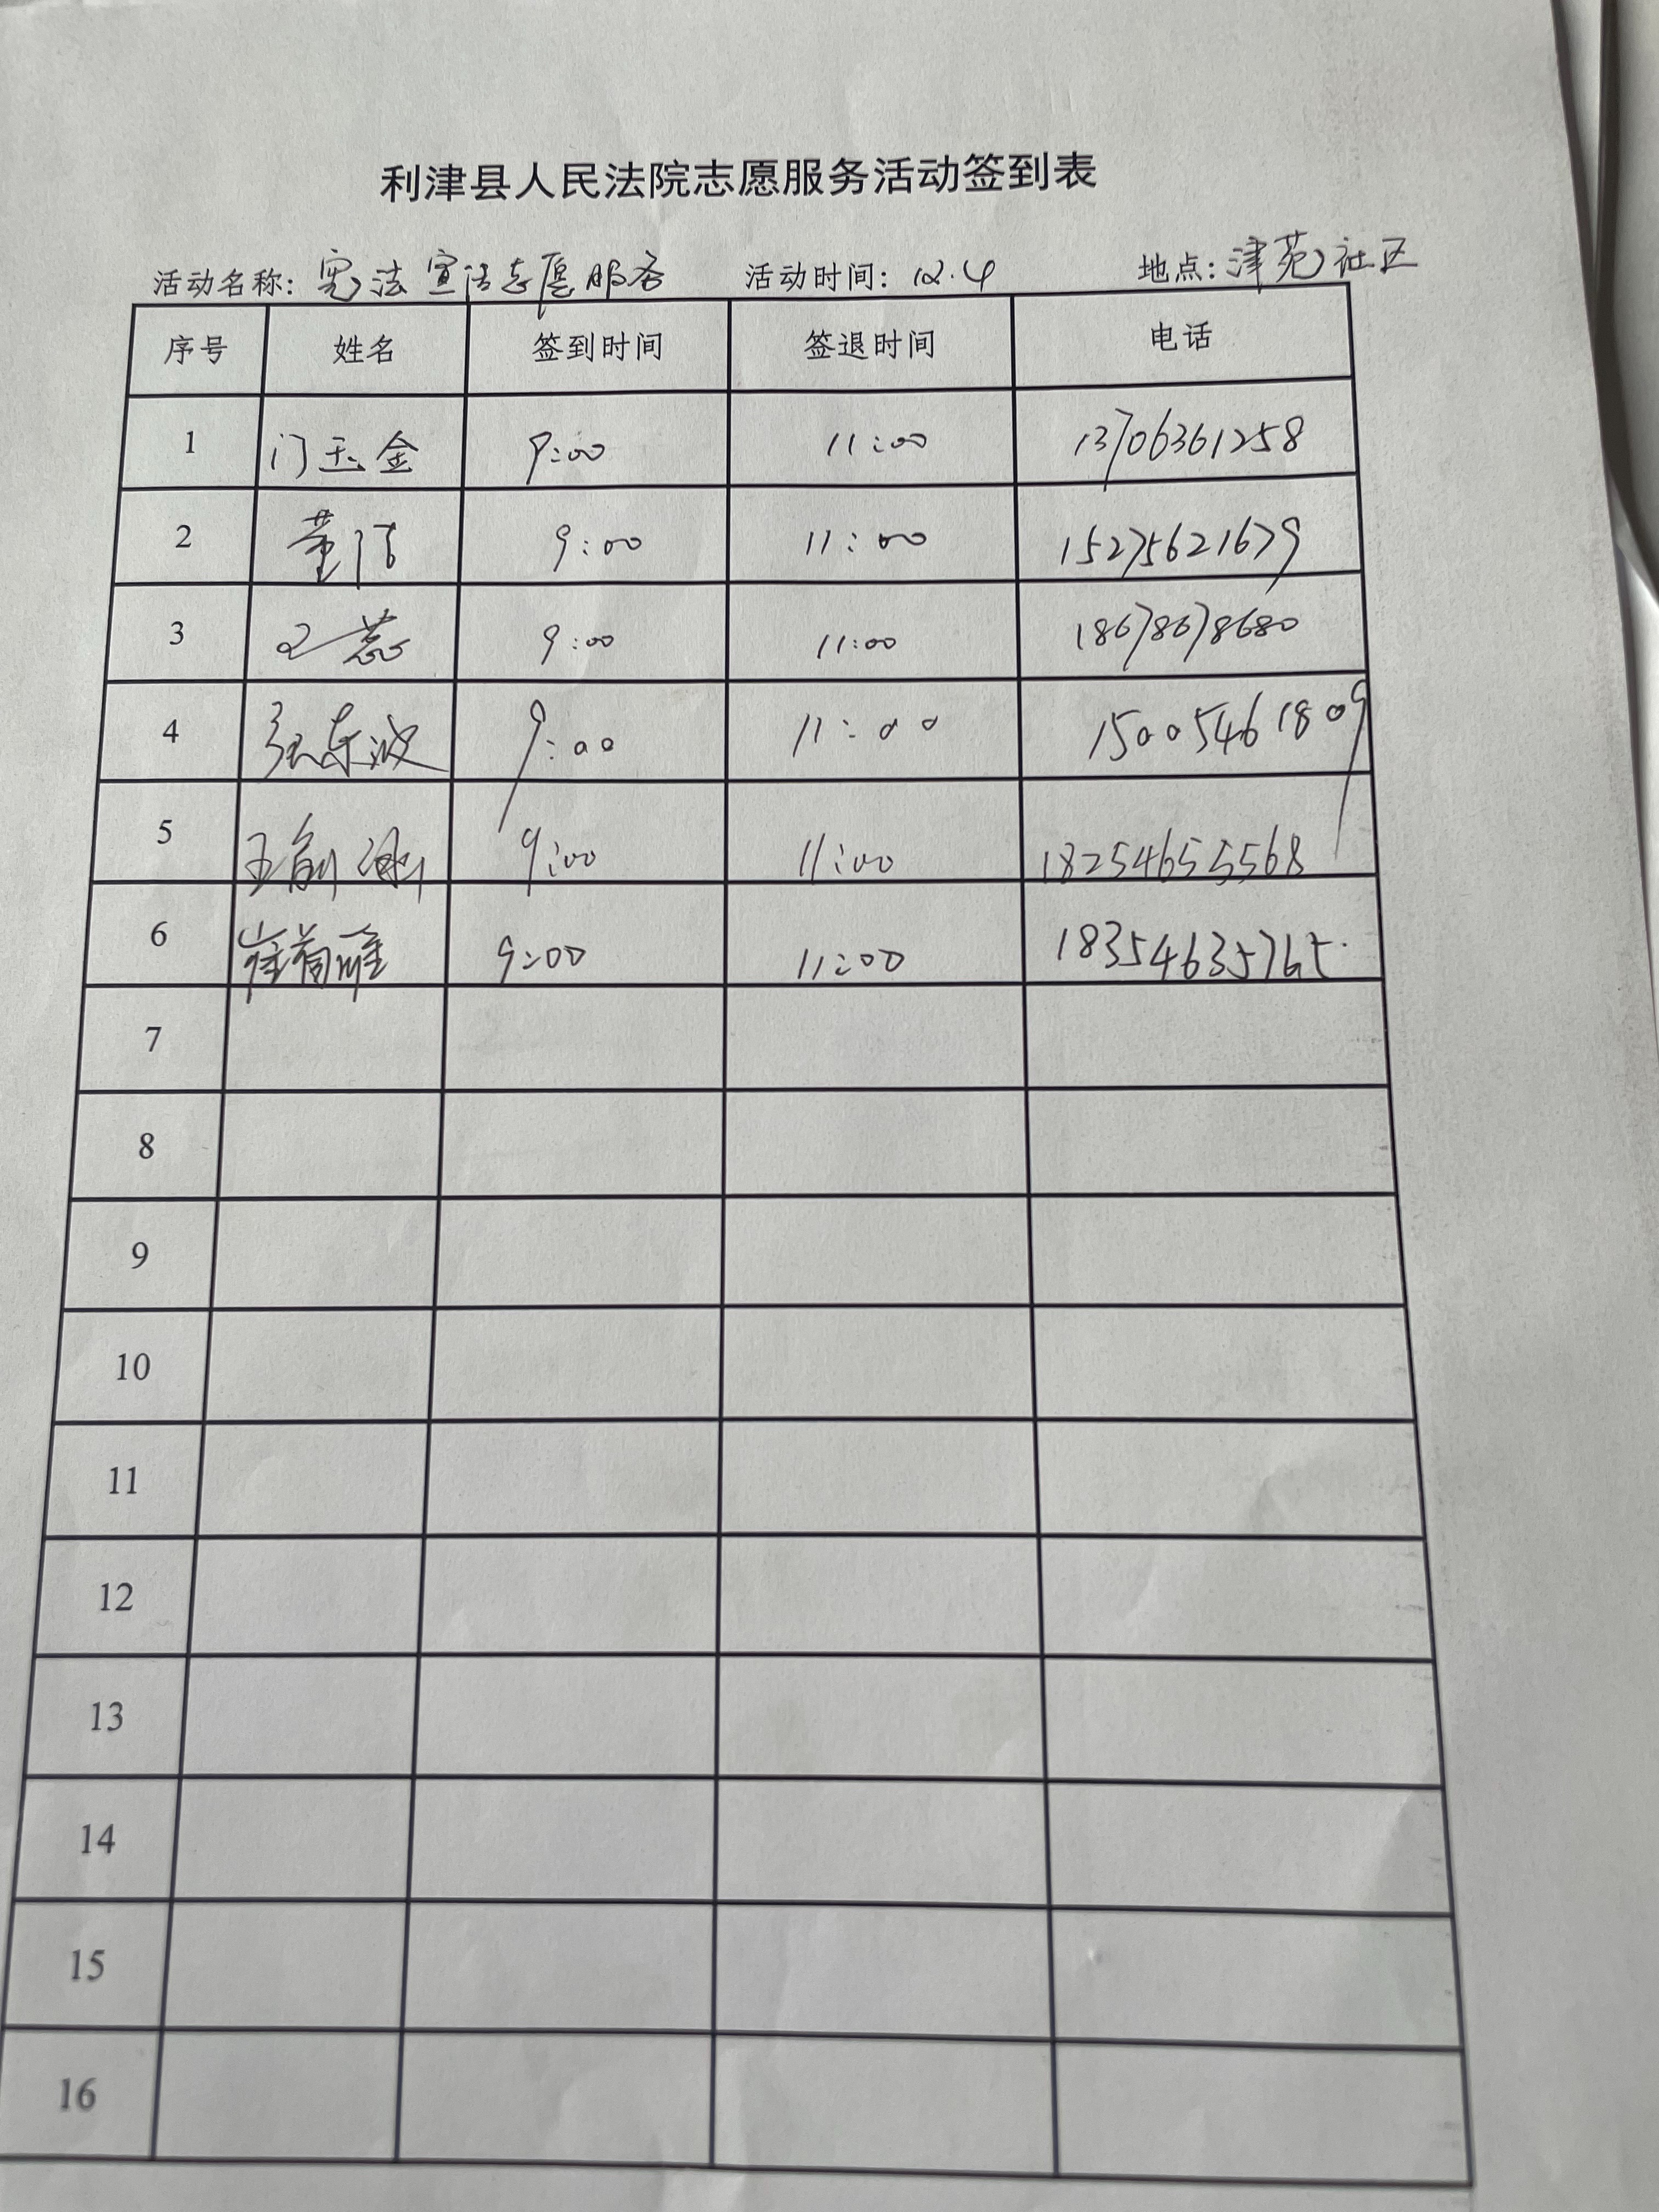 利津县人民法院志愿服务活动签到表
活动名称: 宪法宣传志愿服务 活动时间: 12.4 地点: 津苑社区
序号 姓名 签到时间 签退时间 电话
1 门玉金 9:00 11:00 13706361258
2 董洁 9:00 11:00 15275621679
3 王蕊 9:00 11:00 18678678680
4 张东波 9:00 11:00 15005461809
5 9:00 11:00 18254655568
6 9:00 11:00 18354635765
7
8
9
10
11
12
13
14
15
16